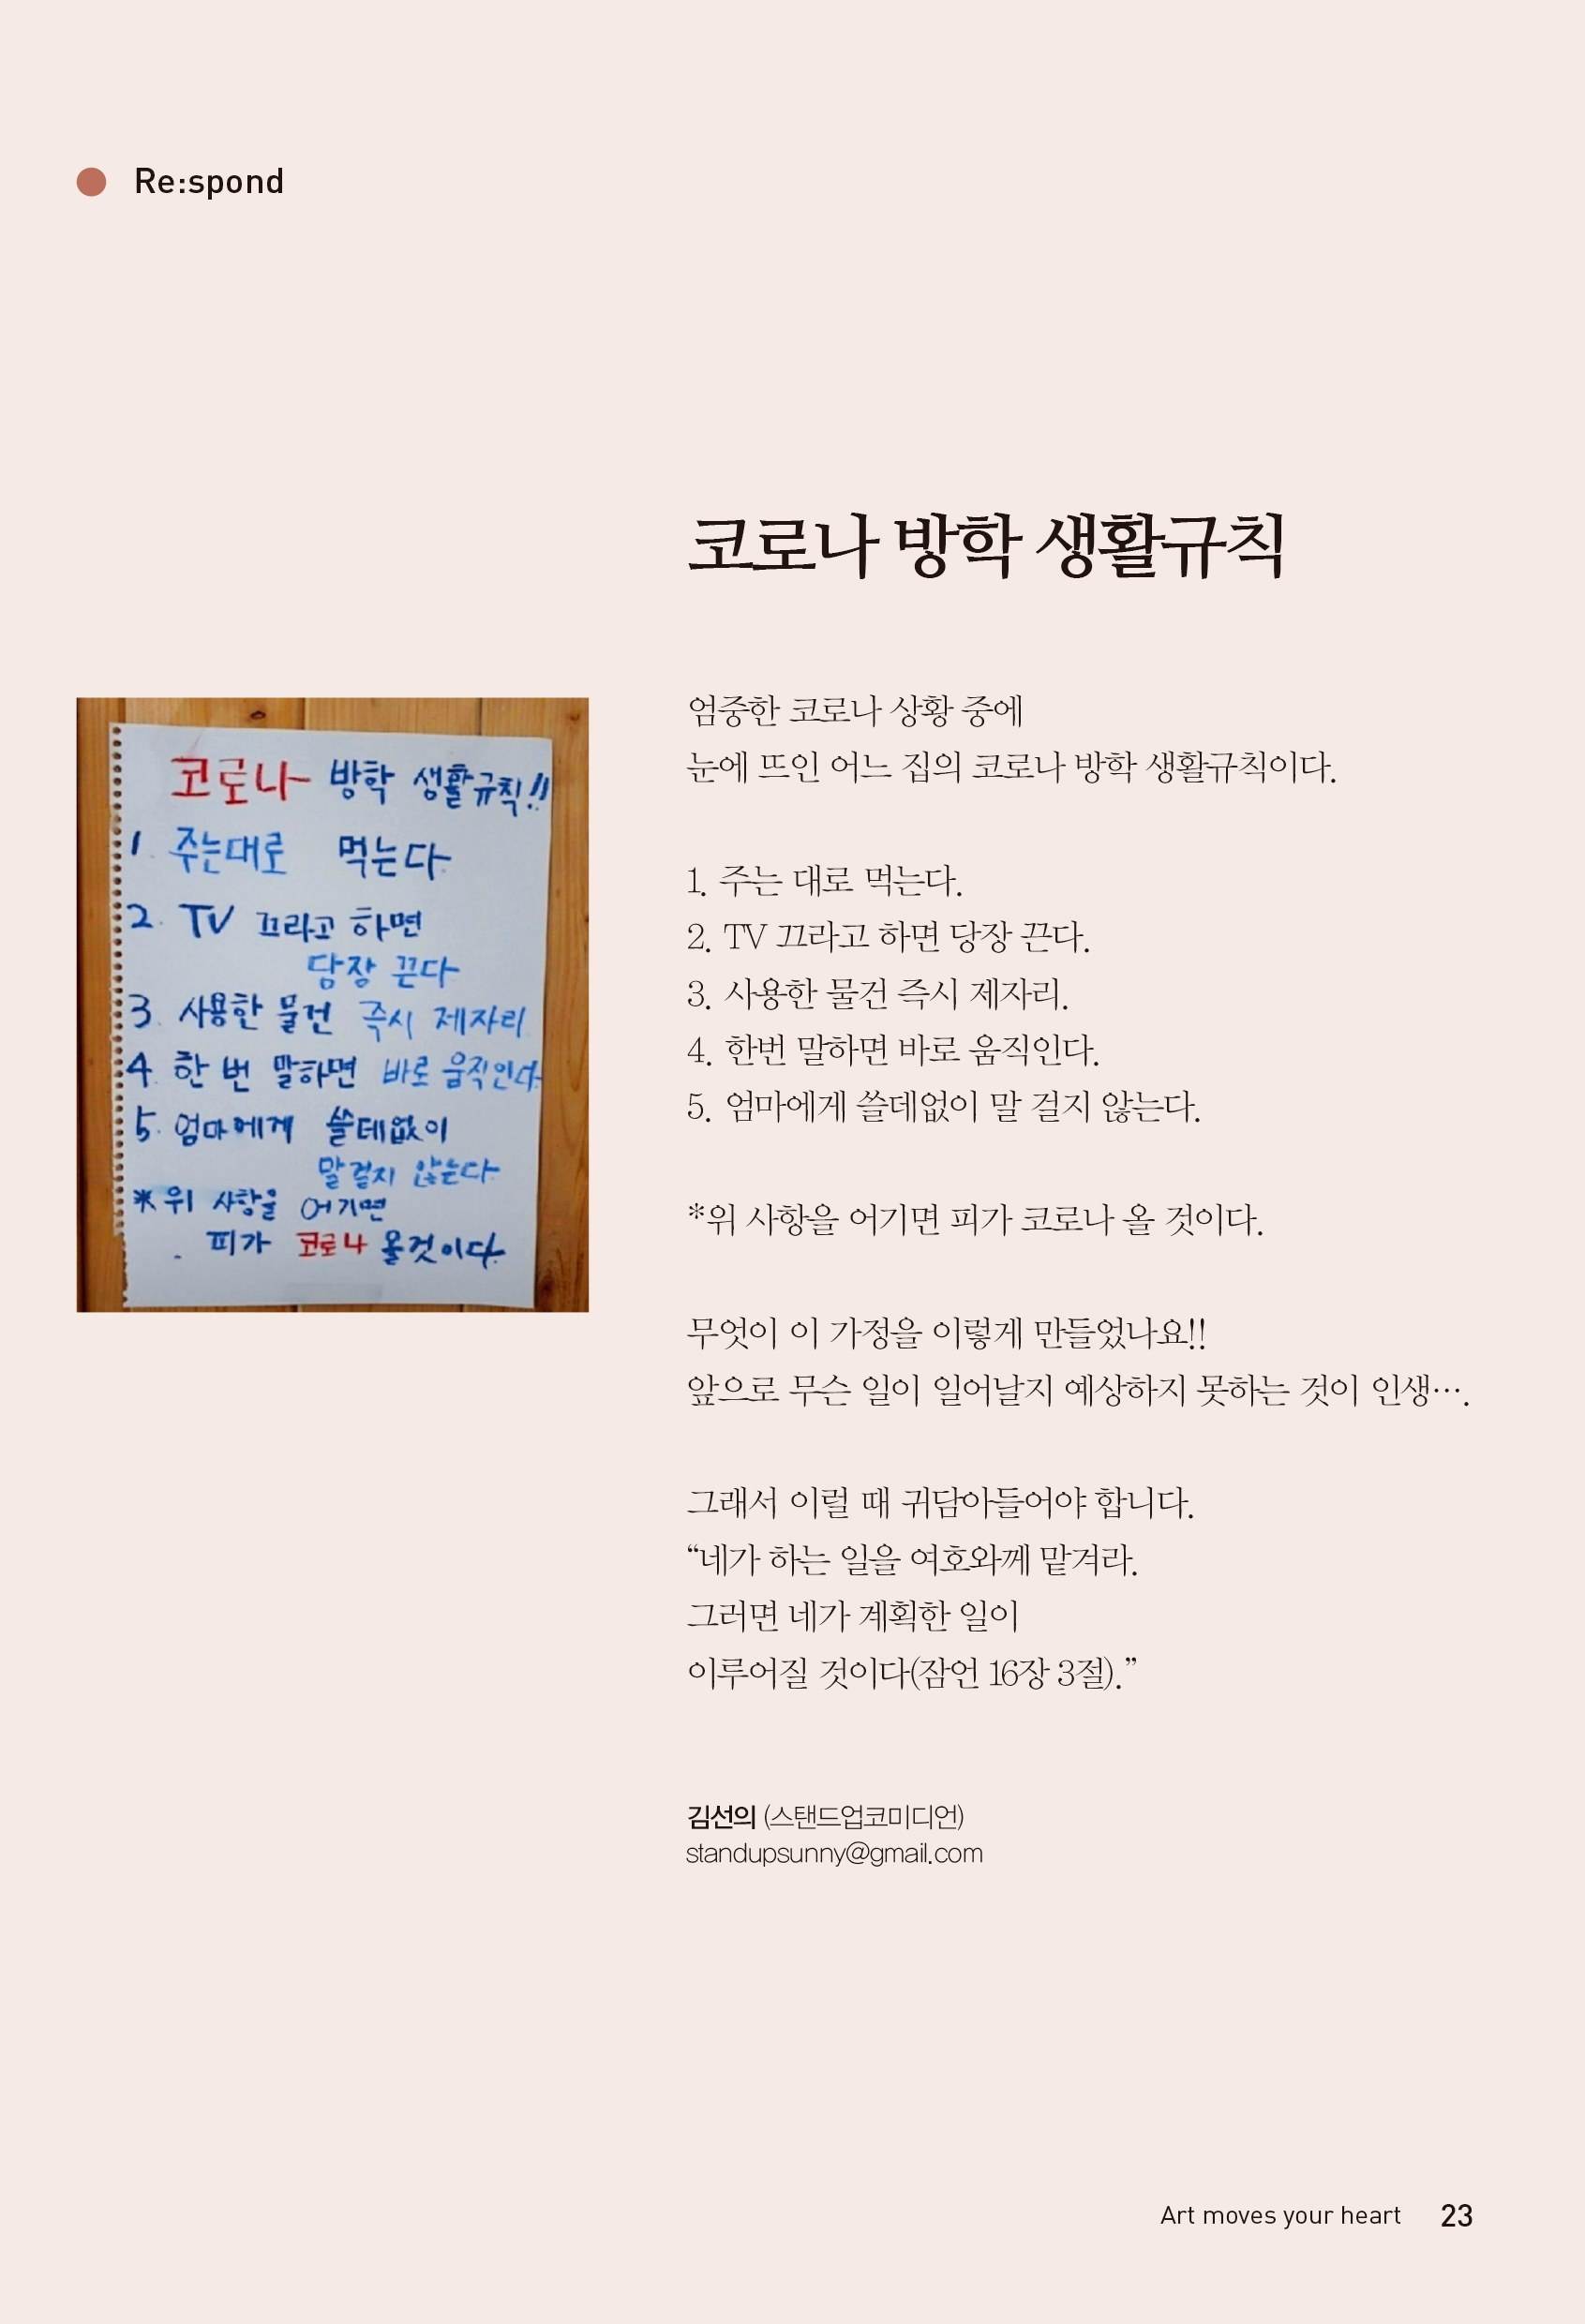 Re:spond
코로나 방학 생활규칙
코로나 방학 생활규칙!!
1. 주는대로 먹는다
2. TV 끄라고 하면
당장 끈다
3. 사용한 물건 즉시 제자리
4. 한 번 말하면 바로 움직인다.
5. 엄마에게 쓸데없이
말걸지 않는다
*위 사항을 어기면
피가 코로나 올것이다.
엄중한 코로나 상황 중에
눈에 뜨인 어느 집의 코로나 방학 생활규칙이다.
1. 주는 대로 먹는다.
2. TV 끄라고 하면 당장 끈다.
3. 사용한 물건 즉시 제자리.
4. 한번 말하면 바로 움직인다.
5. 엄마에게 쓸데없이 말 걸지 않는다.
*위 사항을 어기면 피가 코로나 올 것이다.
무엇이 이 가정을 이렇게 만들었나요!!
앞으로 무슨 일이 일어날지 예상하지 못하는 것이 인생….
그래서 이럴 때 귀담아들어야 합니다.
“네가 하는 일을 여호와께 맡겨라.
그러면 네가 계획한 일이
이루어질 것이다(잠언 16장 3절).”
김선의 (스탠드업코미디언)
standupsunny@gmail.com
Art moves your heart 23